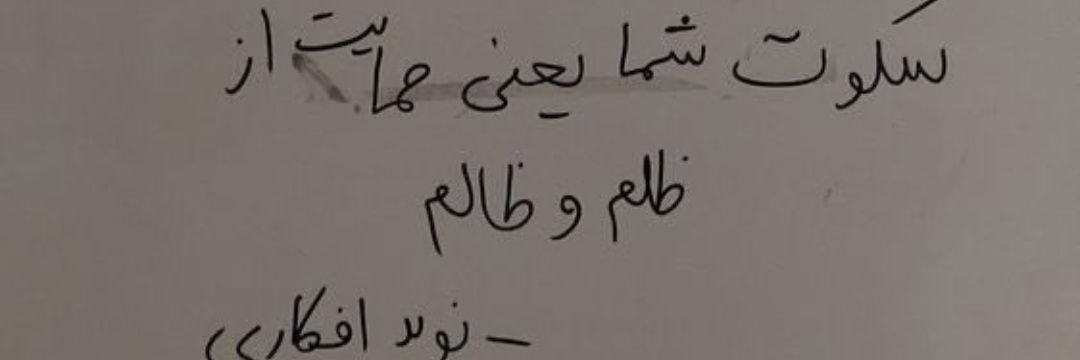 سکوت شما یعنی حمایت از
ظلم و ظالم
- نوید افکاری